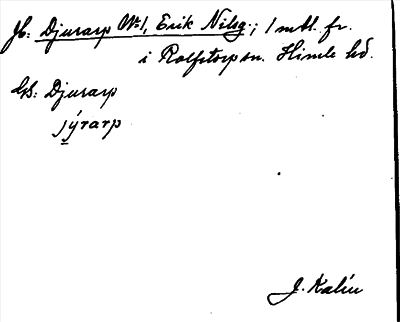 Jb: Djurarp № 1, Erik Nilsg.; 1 mtl. fr.
i Rolfstorp sn. Himle hd.
GS: Djurarp
jýrarp
J. Kalén